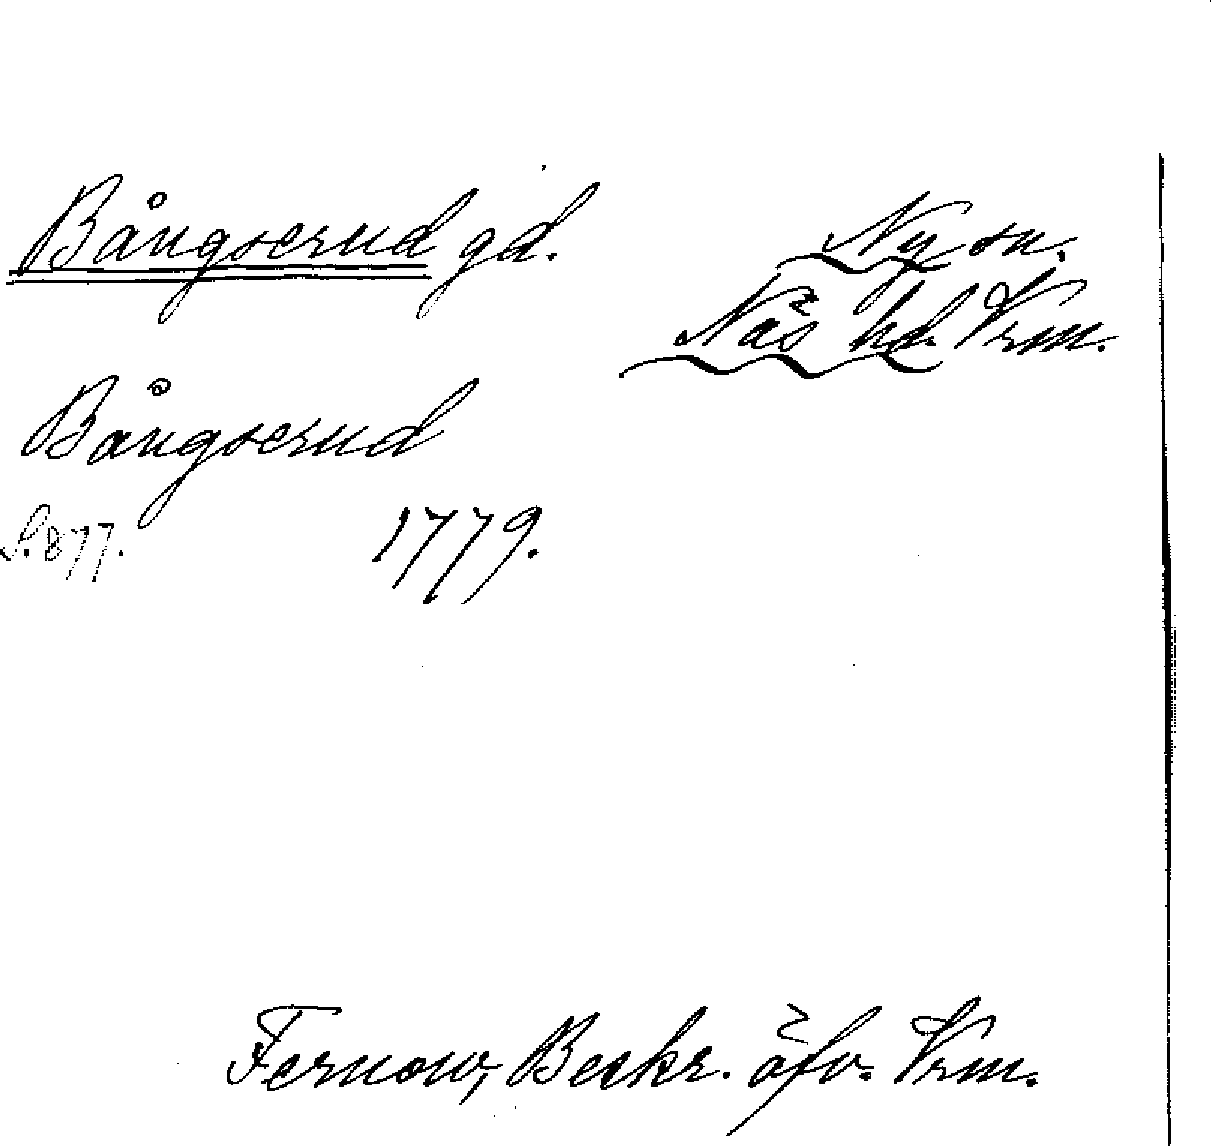 Bångserud gd.
Ny sn.
Näs hd. Vrm.
Bångserud
S. 877.
1779.
Fernow, Beskr. öfv. Vrm.